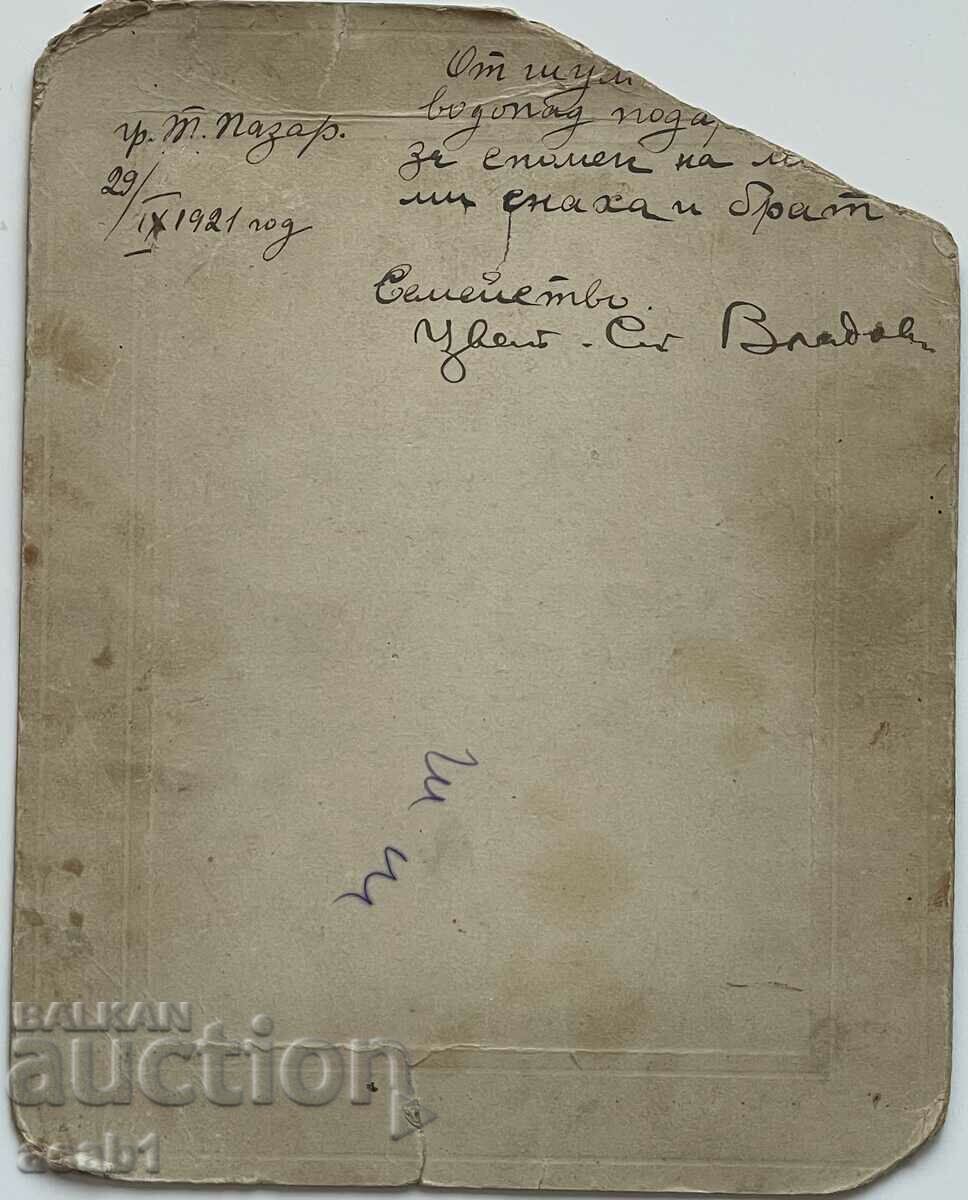 гр. Т. Пазар.
29/IX 1921 год
От шум
водопад пода
за спомен на ми
ми снаха и брат
Семейство.
Цвет. Ст Владов
BALKAN
auction
acab1